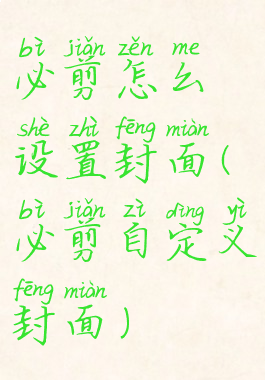 bì jiǎn zěn me
必剪怎么
shè zhì fēng miàn
设置封面(
bì jiǎn zì dìng yì
必剪自定义
fēng miàn
封面)